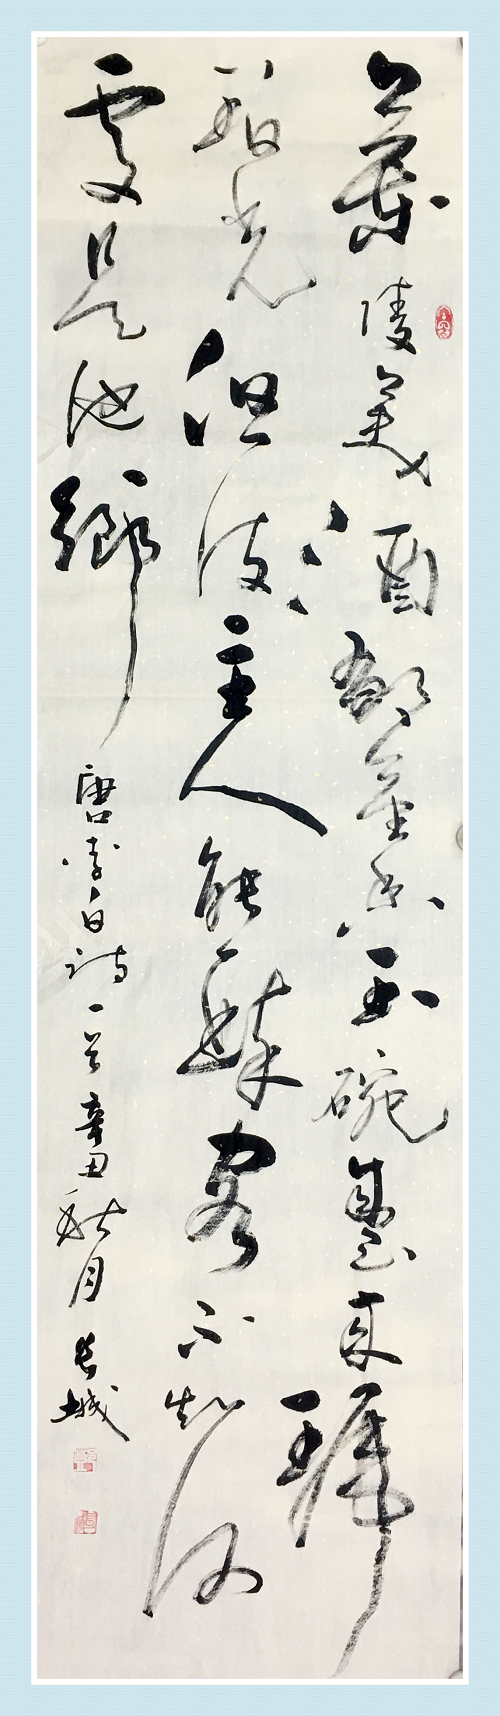 蘭陵美酒郁金香玉碗盛来琥
珀光但使主人能醉客不知何
處是他鄉 唐李白詩一首辛丑秋月長城